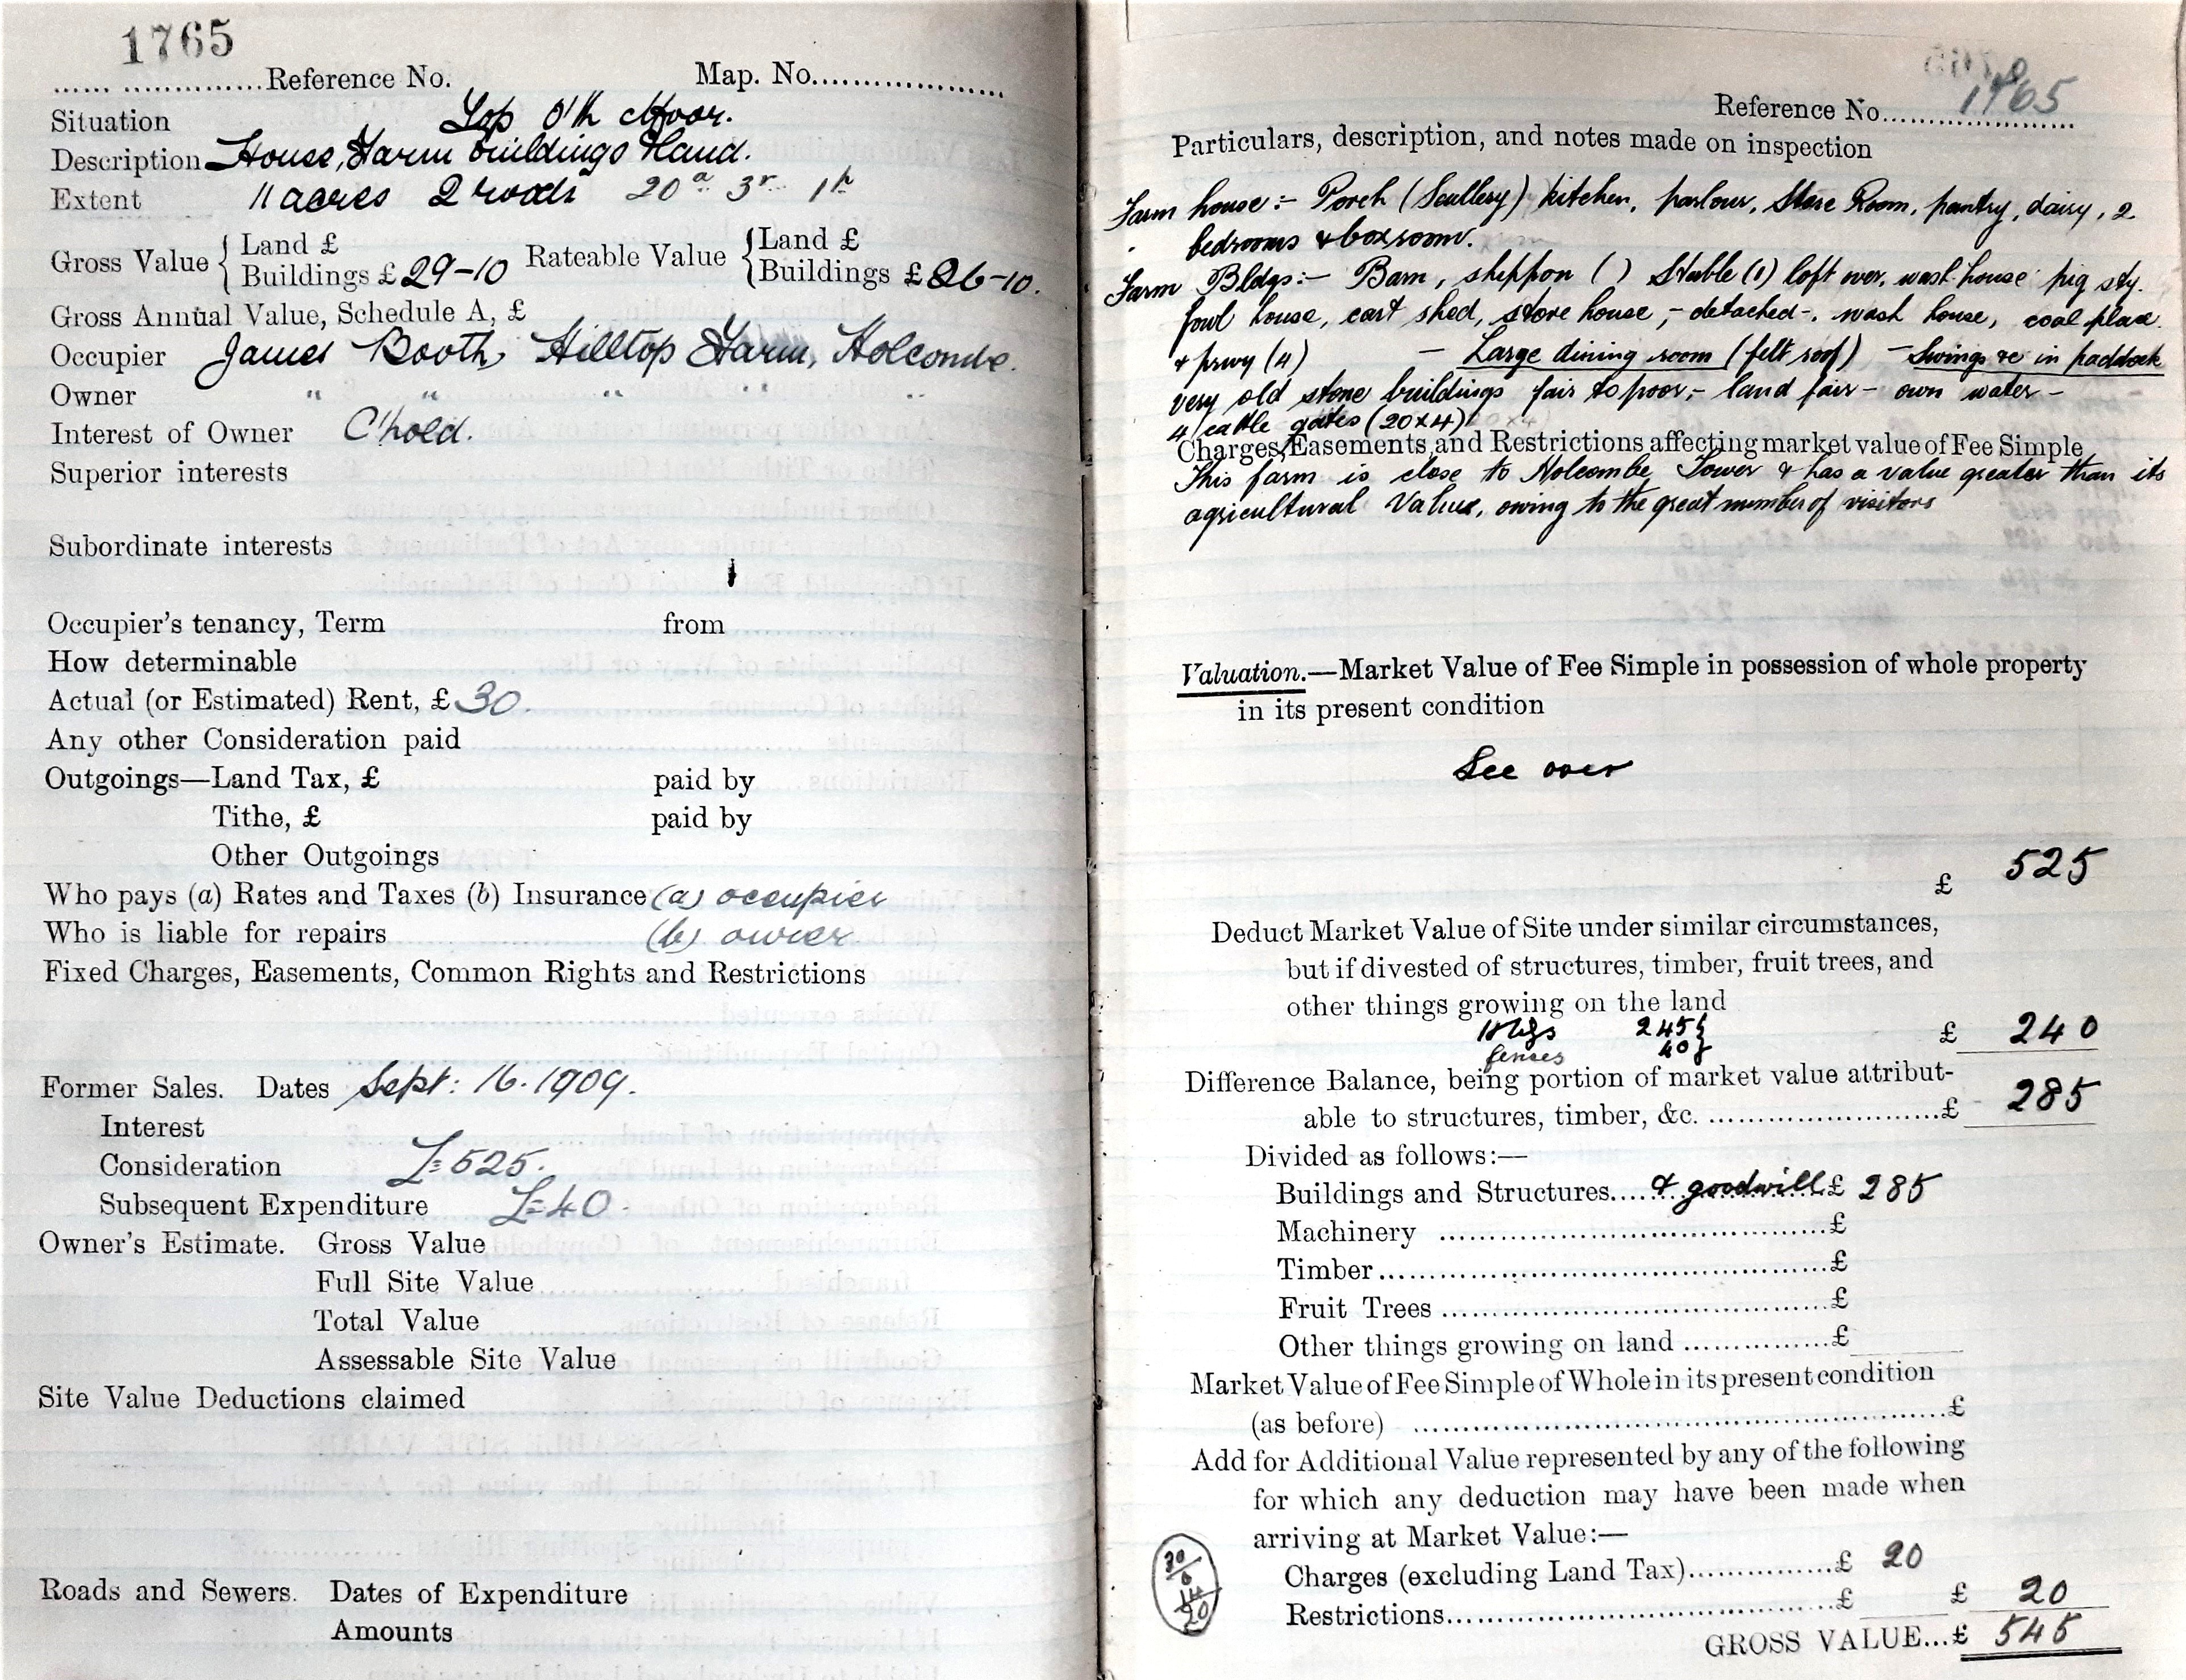 1765
...... ..............Reference No. Map. No...................
Situation Top O'th Moor.
Description House, Farm buildings & land.
Extent 11 acres 2 roods 20a 3r 1p
Gross Value { Land £ Rateable Value { Land £
Buildings £ 29-10 Buildings £ 26-10.
Gross Annual Value, Schedule A, £
Occupier James Booth, Hilltop Farm, Holcombe.
Owner " " " " "
Interest of Owner C'hold.
Superior interests
Subordinate interests
Occupier's tenancy, Term from
How determinable
Actual (or Estimated) Rent, £ 30.
Any other Consideration paid
Outgoings—Land Tax, £ paid by
Tithe, £ paid by
Other Outgoings
Who pays (a) Rates and Taxes (b) Insurance (a) occupier
Who is liable for repairs (b) owner
Fixed Charges, Easements, Common Rights and Restrictions
Former Sales. Dates Sept: 16. 1909.
Interest
Consideration £=525.
Subsequent Expenditure £=40.
Owner's Estimate. Gross Value
Full Site Value
Total Value
Assessable Site Value
Site Value Deductions claimed
Roads and Sewers. Dates of Expenditure
Amounts
Reference No. 1765
Particulars, description, and notes made on inspection
Farm house:- Porch (Scullery) kitchen, parlour, Store Room, pantry, dairy, 2
bedrooms & boxroom.
Farm Bldgs:- Barn, shippon ( ) Stable (1) loft over, wash-house pig sty.
fowl house, cart shed, store house,- detached-. wash house, coal place.
& privy (4) - Large dining room (felt roof) - Swings &c in paddock
very old stone buildings fair to poor,- land fair - own water -
4 cattle gates (20x4)
Charges, Easements, and Restrictions affecting market value of Fee Simple
This farm is close to Holcombe Tower & has a value greater than its
agricultural Value, owing to the great number of visitors
Valuation.—Market Value of Fee Simple in possession of whole property
in its present condition
See over
£ 525
Deduct Market Value of Site under similar circumstances,
but if divested of structures, timber, fruit trees, and
other things growing on the land
245 } £ 240
fences 40 }
Difference Balance, being portion of market value attribut-
able to structures, timber, &c. ........................£ 285
Divided as follows:—
Buildings and Structures.... & goodwill £ 285
Machinery ........................................£
Timber..............................................£
Fruit Trees .......................................£
Other things growing on land ................£
Market Value of Fee Simple of Whole in its present condition
(as before) ..........................................................£
Add for Additional Value represented by any of the following
for which any deduction may have been made when
arriving at Market Value:—
Charges (excluding Land Tax)...............£ 20
Restrictions.........................................£ £ 20
GROSS VALUE...£ 545